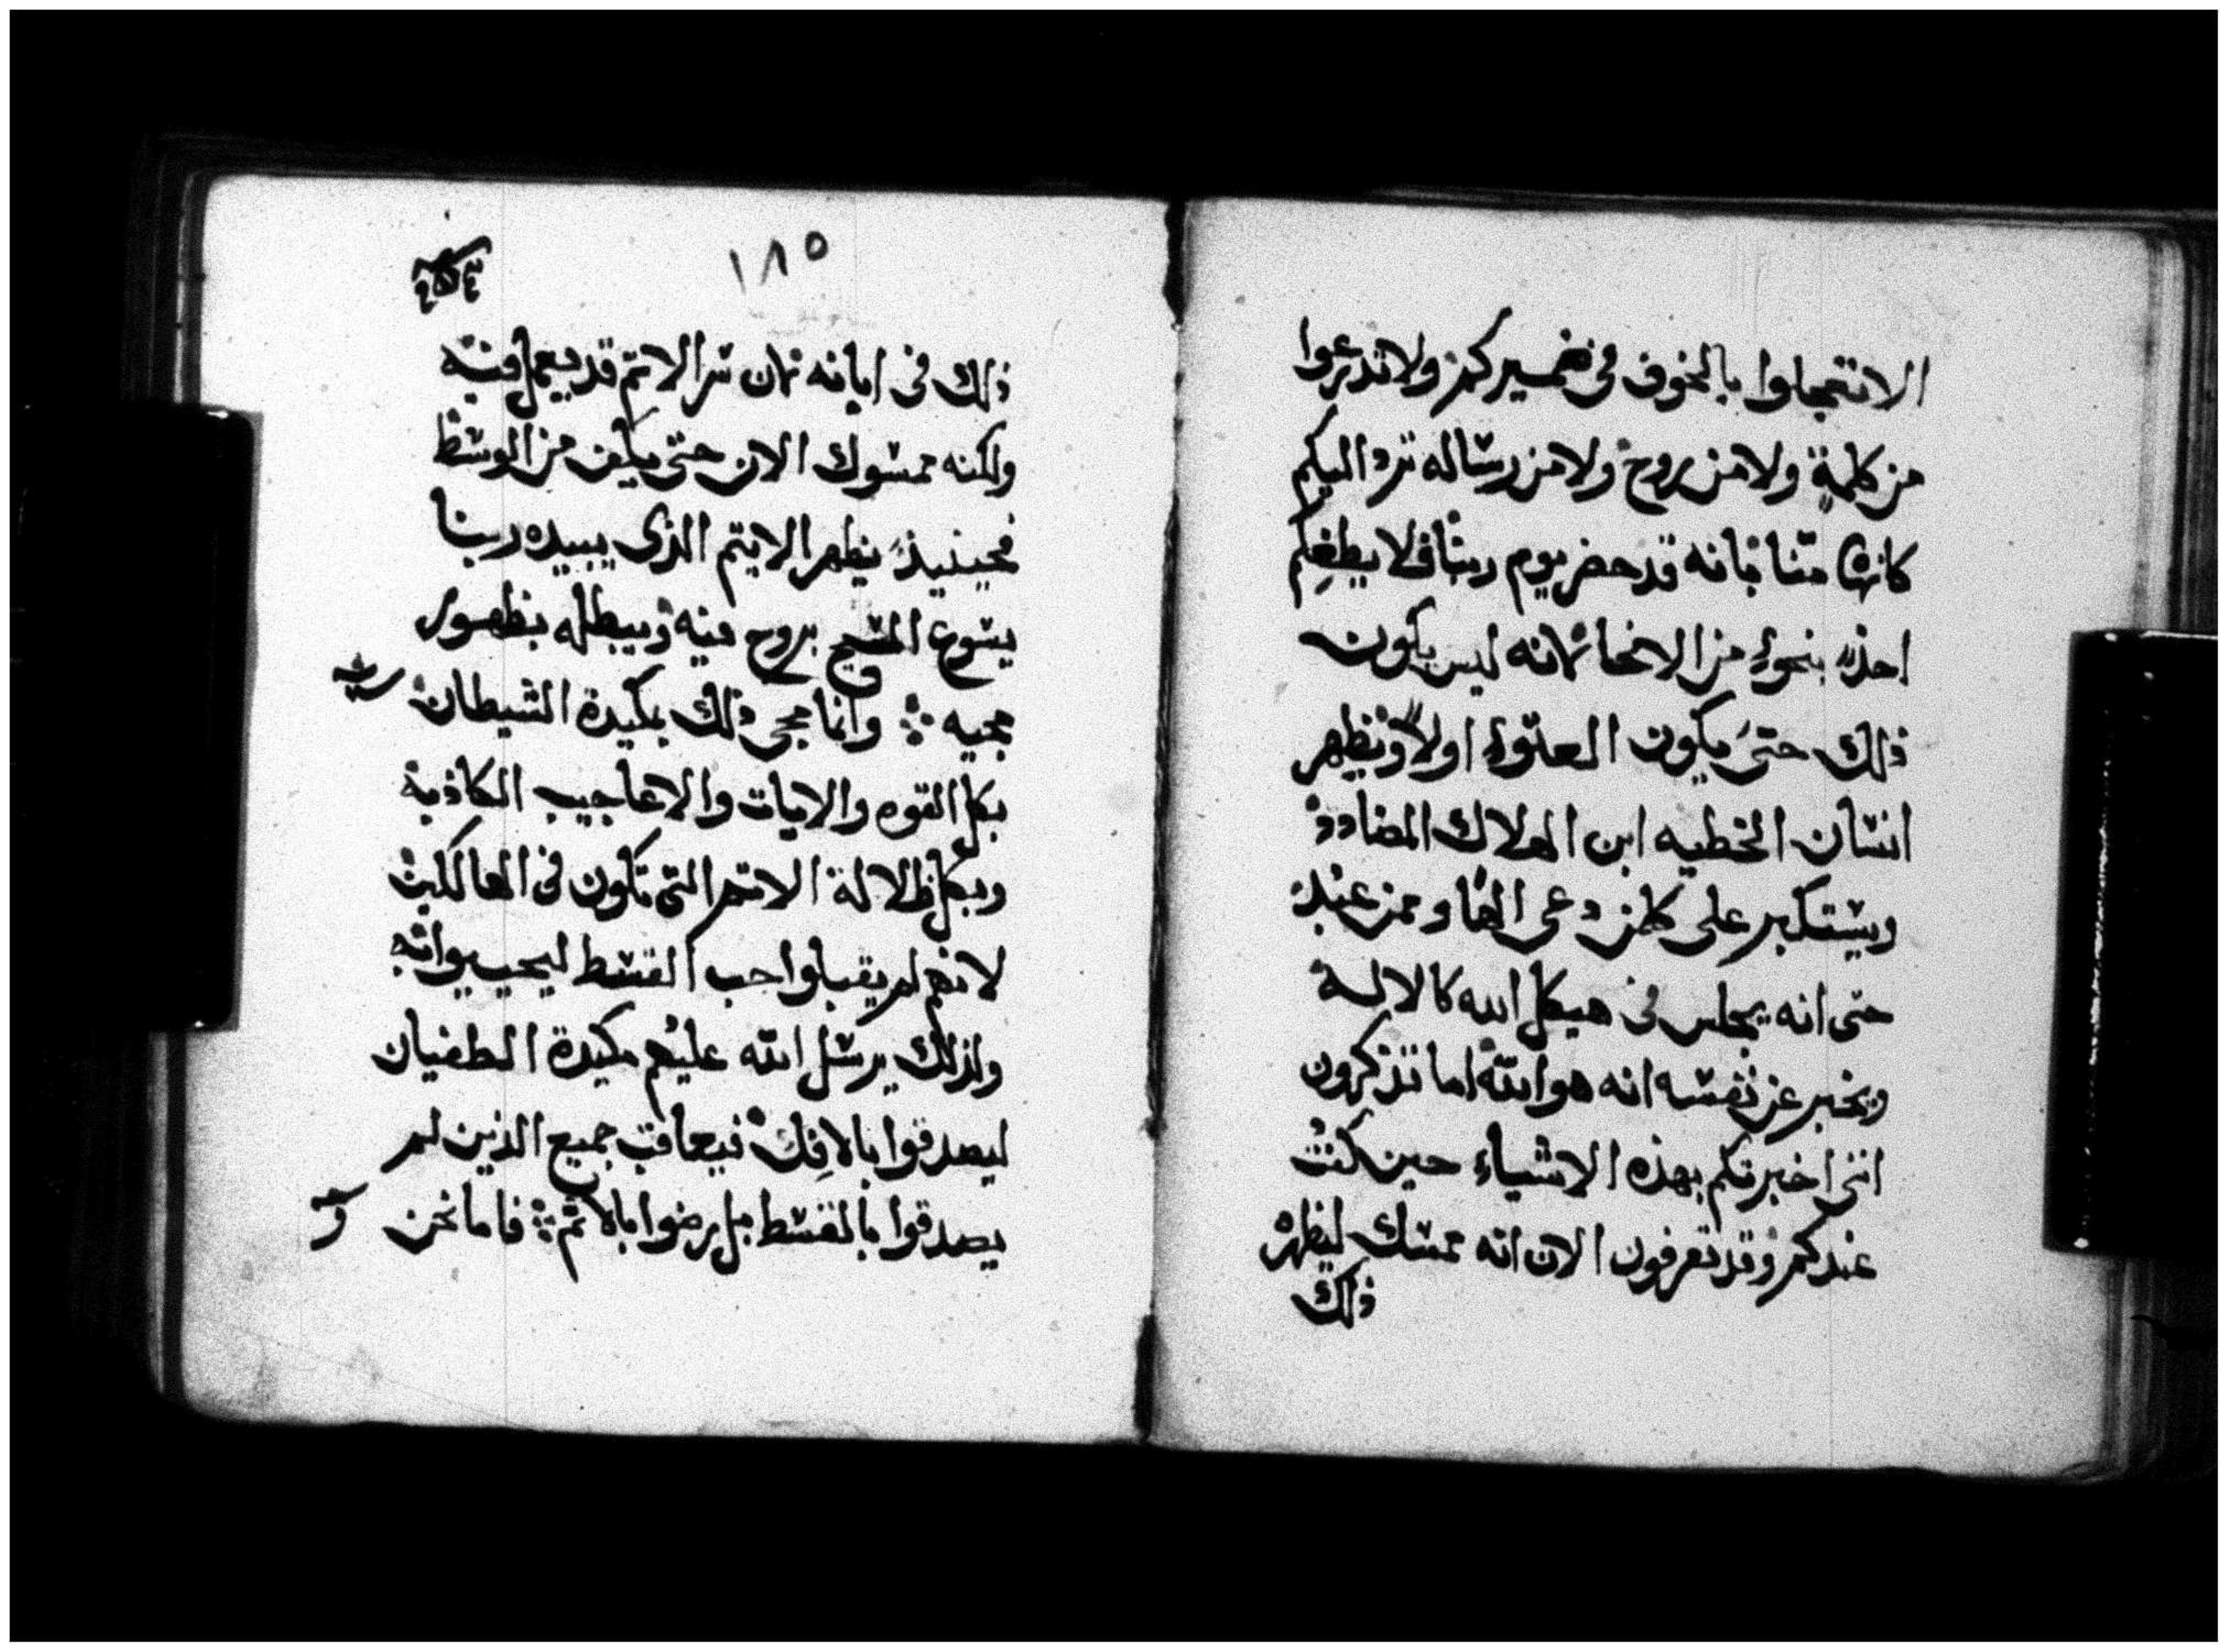 الا تتعجلوا بالخوف فى ضميركم ولا تدعروا
من كلمةٍ ولا من روح ولا من رساله ترد اليكم
كانها منا فانه قد حضر يوم ربنا فلا يطغكم
احدًا بنحوٍ من الانحا لانه ليس يكون
ذلك حتى يكون العتوء اولاً ويظهر
انسان الخطيه ابن الهلاك المضادد
ويستكبر على كلمن دعى الهًا وممن عبد
حتى انه يجلس فى هيكل الله كالالة
ويخبر عن نفسه انه هو الله اما تذكرون
اننى اخبرتكم بهذه الاشياء حين كنت
عندكم وقد تعرفون الان انه ممسك ليظهر
ذلك
١٨٥
ذلك فى ابانه لان سر الاتم قد يعمل فيه
ولكنه ممسوك الان حتى يكن من الوسط
فحينيذ يظهر الايتم الذى يبيده ربنا
يسوع المسيح بروح فيه ويبطله بظهور
مجيه ※ وانما مجى ذلك بمكيدة الشيطان
بكل القوه والايات والاعاجيب الكاذبة
وبكل ظلالة الاتم التى تكون فى الهالكين
لانهم لم يقبلوا حب القسط ليحييوا به
ولذلك يرسل الله عليهم مكيدة الطغيان
ليصدقوا بالافك فيعاقب جميع الذين لم
يصدقوا بالقسط بل رضوا بالاثم ※ فاما نحن